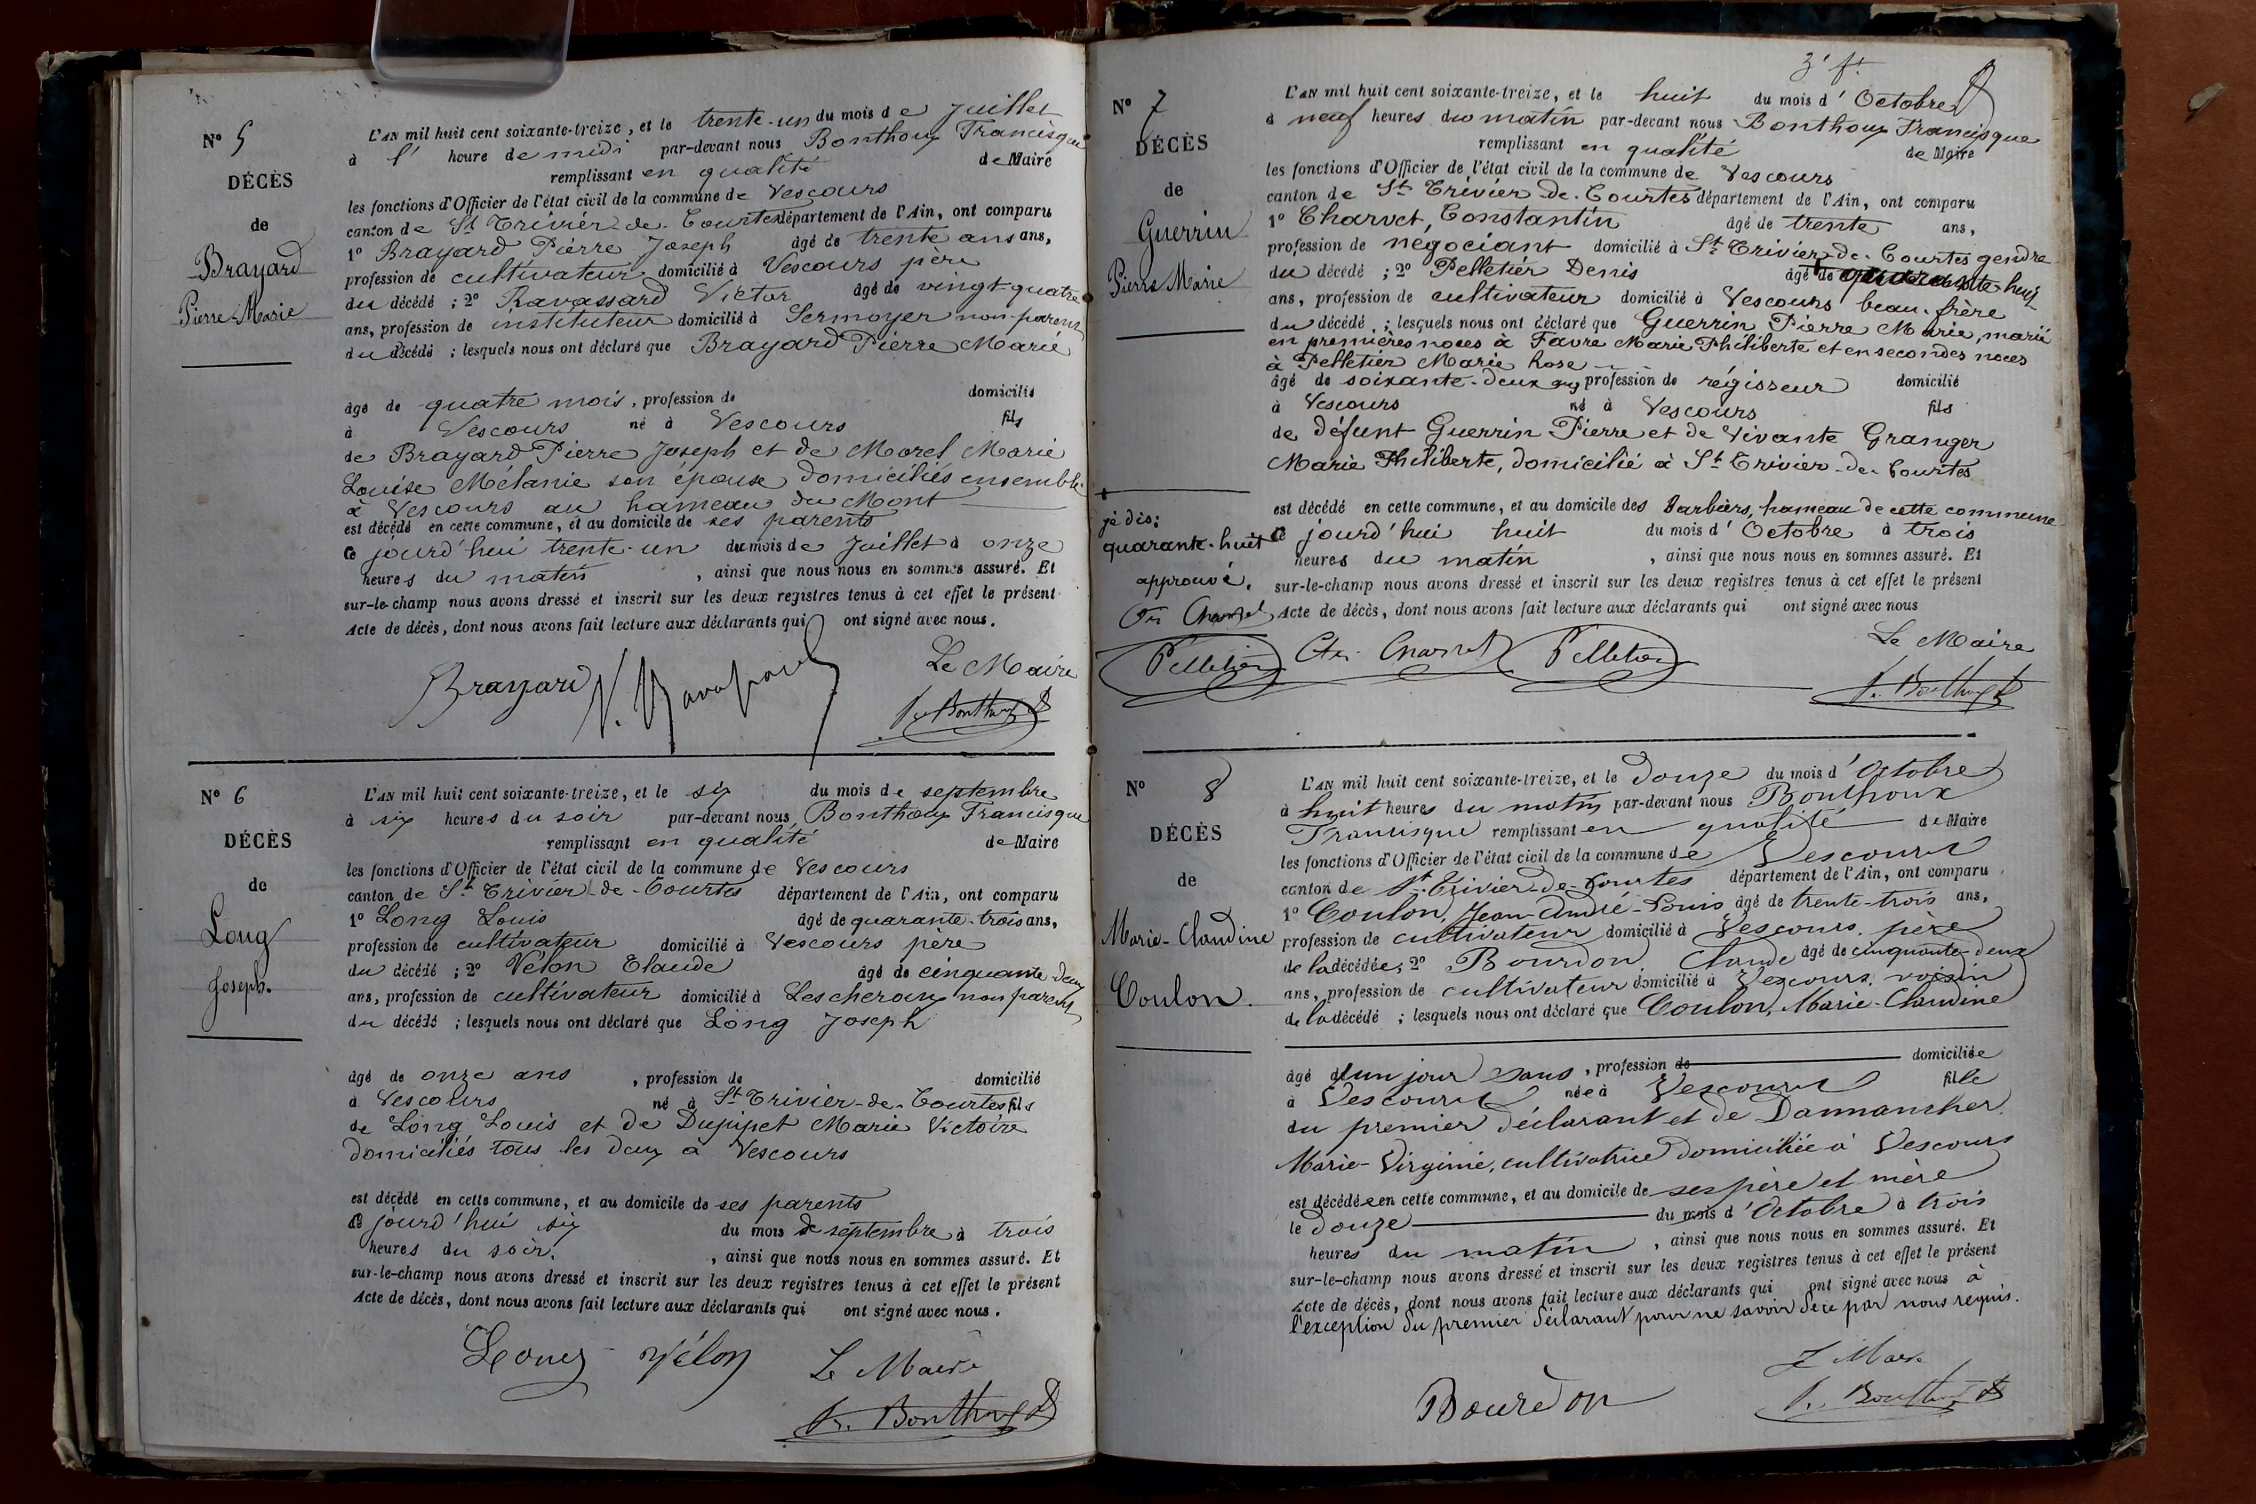 N° 5
DÉCÈS
de
Brayard
Pierre Marie
L'AN mil huit cent soixante-treize, et le trente-un du mois de Juillet
à l' heure de midi par-devant nous Bonthoux Francisque
remplissant en qualité de Maire
les fonctions d'Officier de l'état civil de la commune de Vescours
canton de St Trivier-de-Courtes département de l'Ain, ont comparu
1° Brayard Pierre Joseph âgé de trente ans ans,
profession de cultivateur domicilié à Vescours père
du décédé ; 2° Ravassard Victor âgé de vingt-quatre
ans, profession de instituteur domicilié à Sermoyer non parent
du décédé ; lesquels nous ont déclaré que Brayard Pierre Marie
âgé de quatre mois, profession de domicilié
à Vescours né à Vescours fils
de Brayard Pierre Joseph et de Morel Marie
Louise Mélanie son épouse domiciliés ensemble
à Vescours au hameau du Mont
est décédé en cette commune, et au domicile de ses parents
ce jourd'hui trente-un du mois de Juillet à onze
heures du matin , ainsi que nous nous en sommes assuré. Et
sur-le-champ nous avons dressé et inscrit sur les deux registres tenus à cet effet le présent
Acte de décès, dont nous avons fait lecture aux déclarants qui ont signé avec nous.
Le Maire
Brayard V. Ravassard
Fr. Bonthoux
N° 6
DÉCÈS
de
Long
Joseph.
L'AN mil huit cent soixante-treize, et le six du mois de septembre
à six heures du soir par-devant nous Bonthoux Francisque
remplissant en qualité de Maire
les fonctions d'Officier de l'état civil de la commune de Vescours
canton de St Trivier-de-Courtes département de l'Ain, ont comparu
1° Long Louis âgé de quarante-trois ans,
profession de cultivateur domicilié à Vescours père
du décédé ; 2° Vélon Claude âgé de cinquante-deux
ans, profession de cultivateur domicilié à Lescheroux non parent
du décédé ; lesquels nous ont déclaré que Long Joseph
âgé de onze ans , profession de domicilié
à Vescours né à St Trivier-de-Courtes fils
de Long Louis et de Dupupet Marie Victoire
domiciliés tous les deux à Vescours
est décédé en cette commune, et au domicile de ses parents
ce jourd'hui six du mois de septembre à trois
heures du soir. , ainsi que nous nous en sommes assuré. Et
sur-le-champ nous avons dressé et inscrit sur les deux registres tenus à cet effet le présent
Acte de décès, dont nous avons fait lecture aux déclarants qui ont signé avec nous.
Long Vélon Le Maire
Fr. Bonthoux
3e ft.
N° 7
DÉCÈS
de
Guerrin
Pierre Marie
L'AN mil huit cent soixante-treize, et le huit du mois d'Octobre
à neuf heures du matin par-devant nous Bonthoux Francisque
remplissant en qualité de Maire
les fonctions d'Officier de l'état civil de la commune de Vescours
canton de St Trivier-de-Courtes département de l'Ain, ont comparu
1° Charvet, Constantin âgé de trente ans,
profession de négociant domicilié à St Trivier-de-Courtes gendre
du décédé ; 2° Pelletier Denis âgé de quarante-huit
ans, profession de cultivateur domicilié à Vescours beau-frère
du décédé ; lesquels nous ont déclaré que Guerrin Pierre Marie, marié
en premières noces à Favre Marie Philiberte et en secondes noces
à Pelletier Marie Rose
âgé de soixante-deux ans profession de régisseur domicilié
à Vescours né à Vescours fils
de défunt Guerrin Pierre et de vivante Granger
Marie Philiberte, domicilié à St Trivier-de-Courtes
est décédé en cette commune, et au domicile des Barbiers, hameau de cette commune
ce jourd'hui huit du mois d'Octobre à trois
heures du matin , ainsi que nous nous en sommes assuré. Et
sur-le-champ nous avons dressé et inscrit sur les deux registres tenus à cet effet le présent
Acte de décès, dont nous avons fait lecture aux déclarants qui ont signé avec nous
je dis:
quarante-huit
approuvé.
Ctn Charvet
Le Maire
Pelletier Ctn Charvet Pelletier
Fr. Bonthoux
N° 8
DÉCÈS
de
Marie-Claudine
Coulon.
L'AN mil huit cent soixante-treize, et le Douze du mois d'Octobre
à huit heures du matin par-devant nous Bonthoux
Francisque remplissant en qualité de Maire
les fonctions d'Officier de l'état civil de la commune de Vescours
canton de St Trivier-de-Courtes département de l'Ain, ont comparu
1° Coulon, Jean-André-Louis âgé de trente-trois ans,
profession de cultivateur domicilié à Vescours, père
de la décédée; 2° Bourdon Claude âgé de cinquante-deux
ans, profession de cultivateur domicilié à Vescours, voisin
de la décédé ; lesquels nous ont déclaré que Coulon, Marie-Claudine
âgé d'un jour sans , profession de domiciliée
à Vescours née à Vescours fille
du premier déclarant et de Dannancher
Marie-Virginie, cultivatrice domiciliée à Vescours
est décédée en cette commune, et au domicile de ses père et mère
le douze du mois d'Octobre à trois
heures du matin , ainsi que nous nous en sommes assuré. Et
sur-le-champ nous avons dressé et inscrit sur les deux registres tenus à cet effet le présent
Acte de décès, dont nous avons fait lecture aux déclarants qui ont signé avec nous à
l'exception du premier déclarant pour ne savoir de ce par nous requis.
Le Maire
Bourdon
Fr. Bonthoux